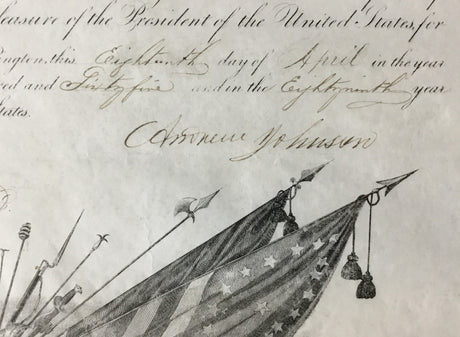 leasure of the President of the United States, for
ington, this Eighteenth day of April in the year
red and Sixty five and in the Eightyninth year
States.
Andrew Johnson